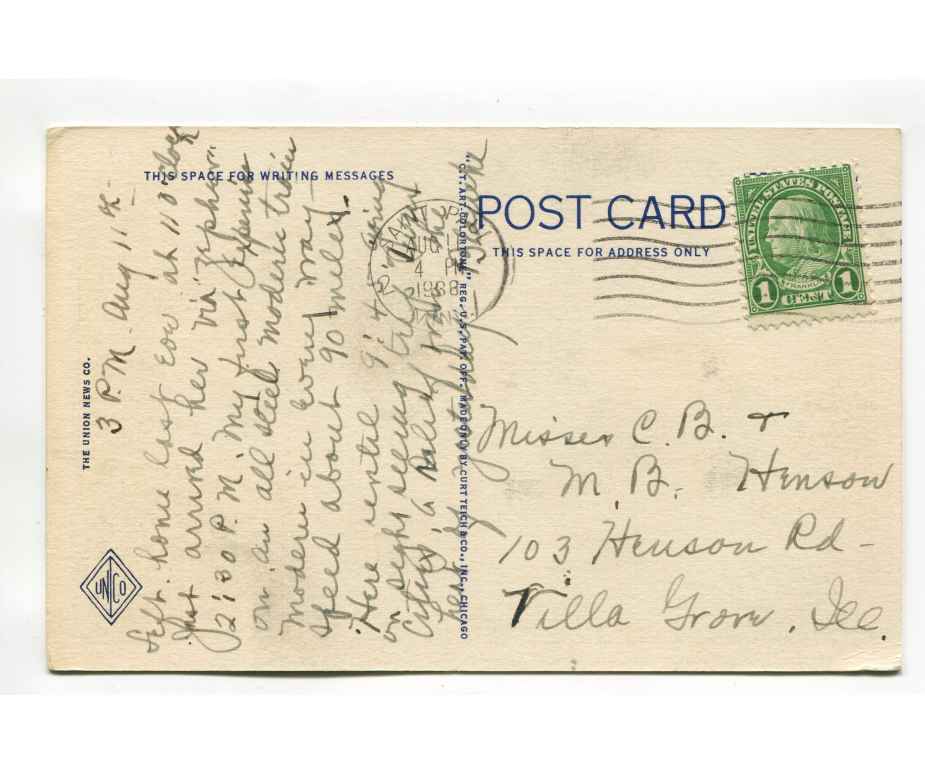 THIS SPACE FOR WRITING MESSAGES
THE UNION NEWS CO.
UNCO
3 P.M. Aug 11
Left home last Eve at 11 o'clock
Just arrived her via "Zephyr"
2:30 P.M. My first Experience
on an all steel modern train
Modern in every way—
Speed about 90 miles.
Here until 9:40
on sight seeing trip
City.
"C.T. ART-COLORTONE" REG. U.S. PAT. OFF. MADE ONLY BY CURT TEICH & CO., INC., CHICAGO
POST CARD
THIS SPACE FOR ADDRESS ONLY
AUG 11
4 PM
1938
UNITED STATES POSTAGE
FRANKLIN
1 CENT 1
Misses C. B. &
M. B. Henson
103 Henson Rd—
Villa Grove, Ill.